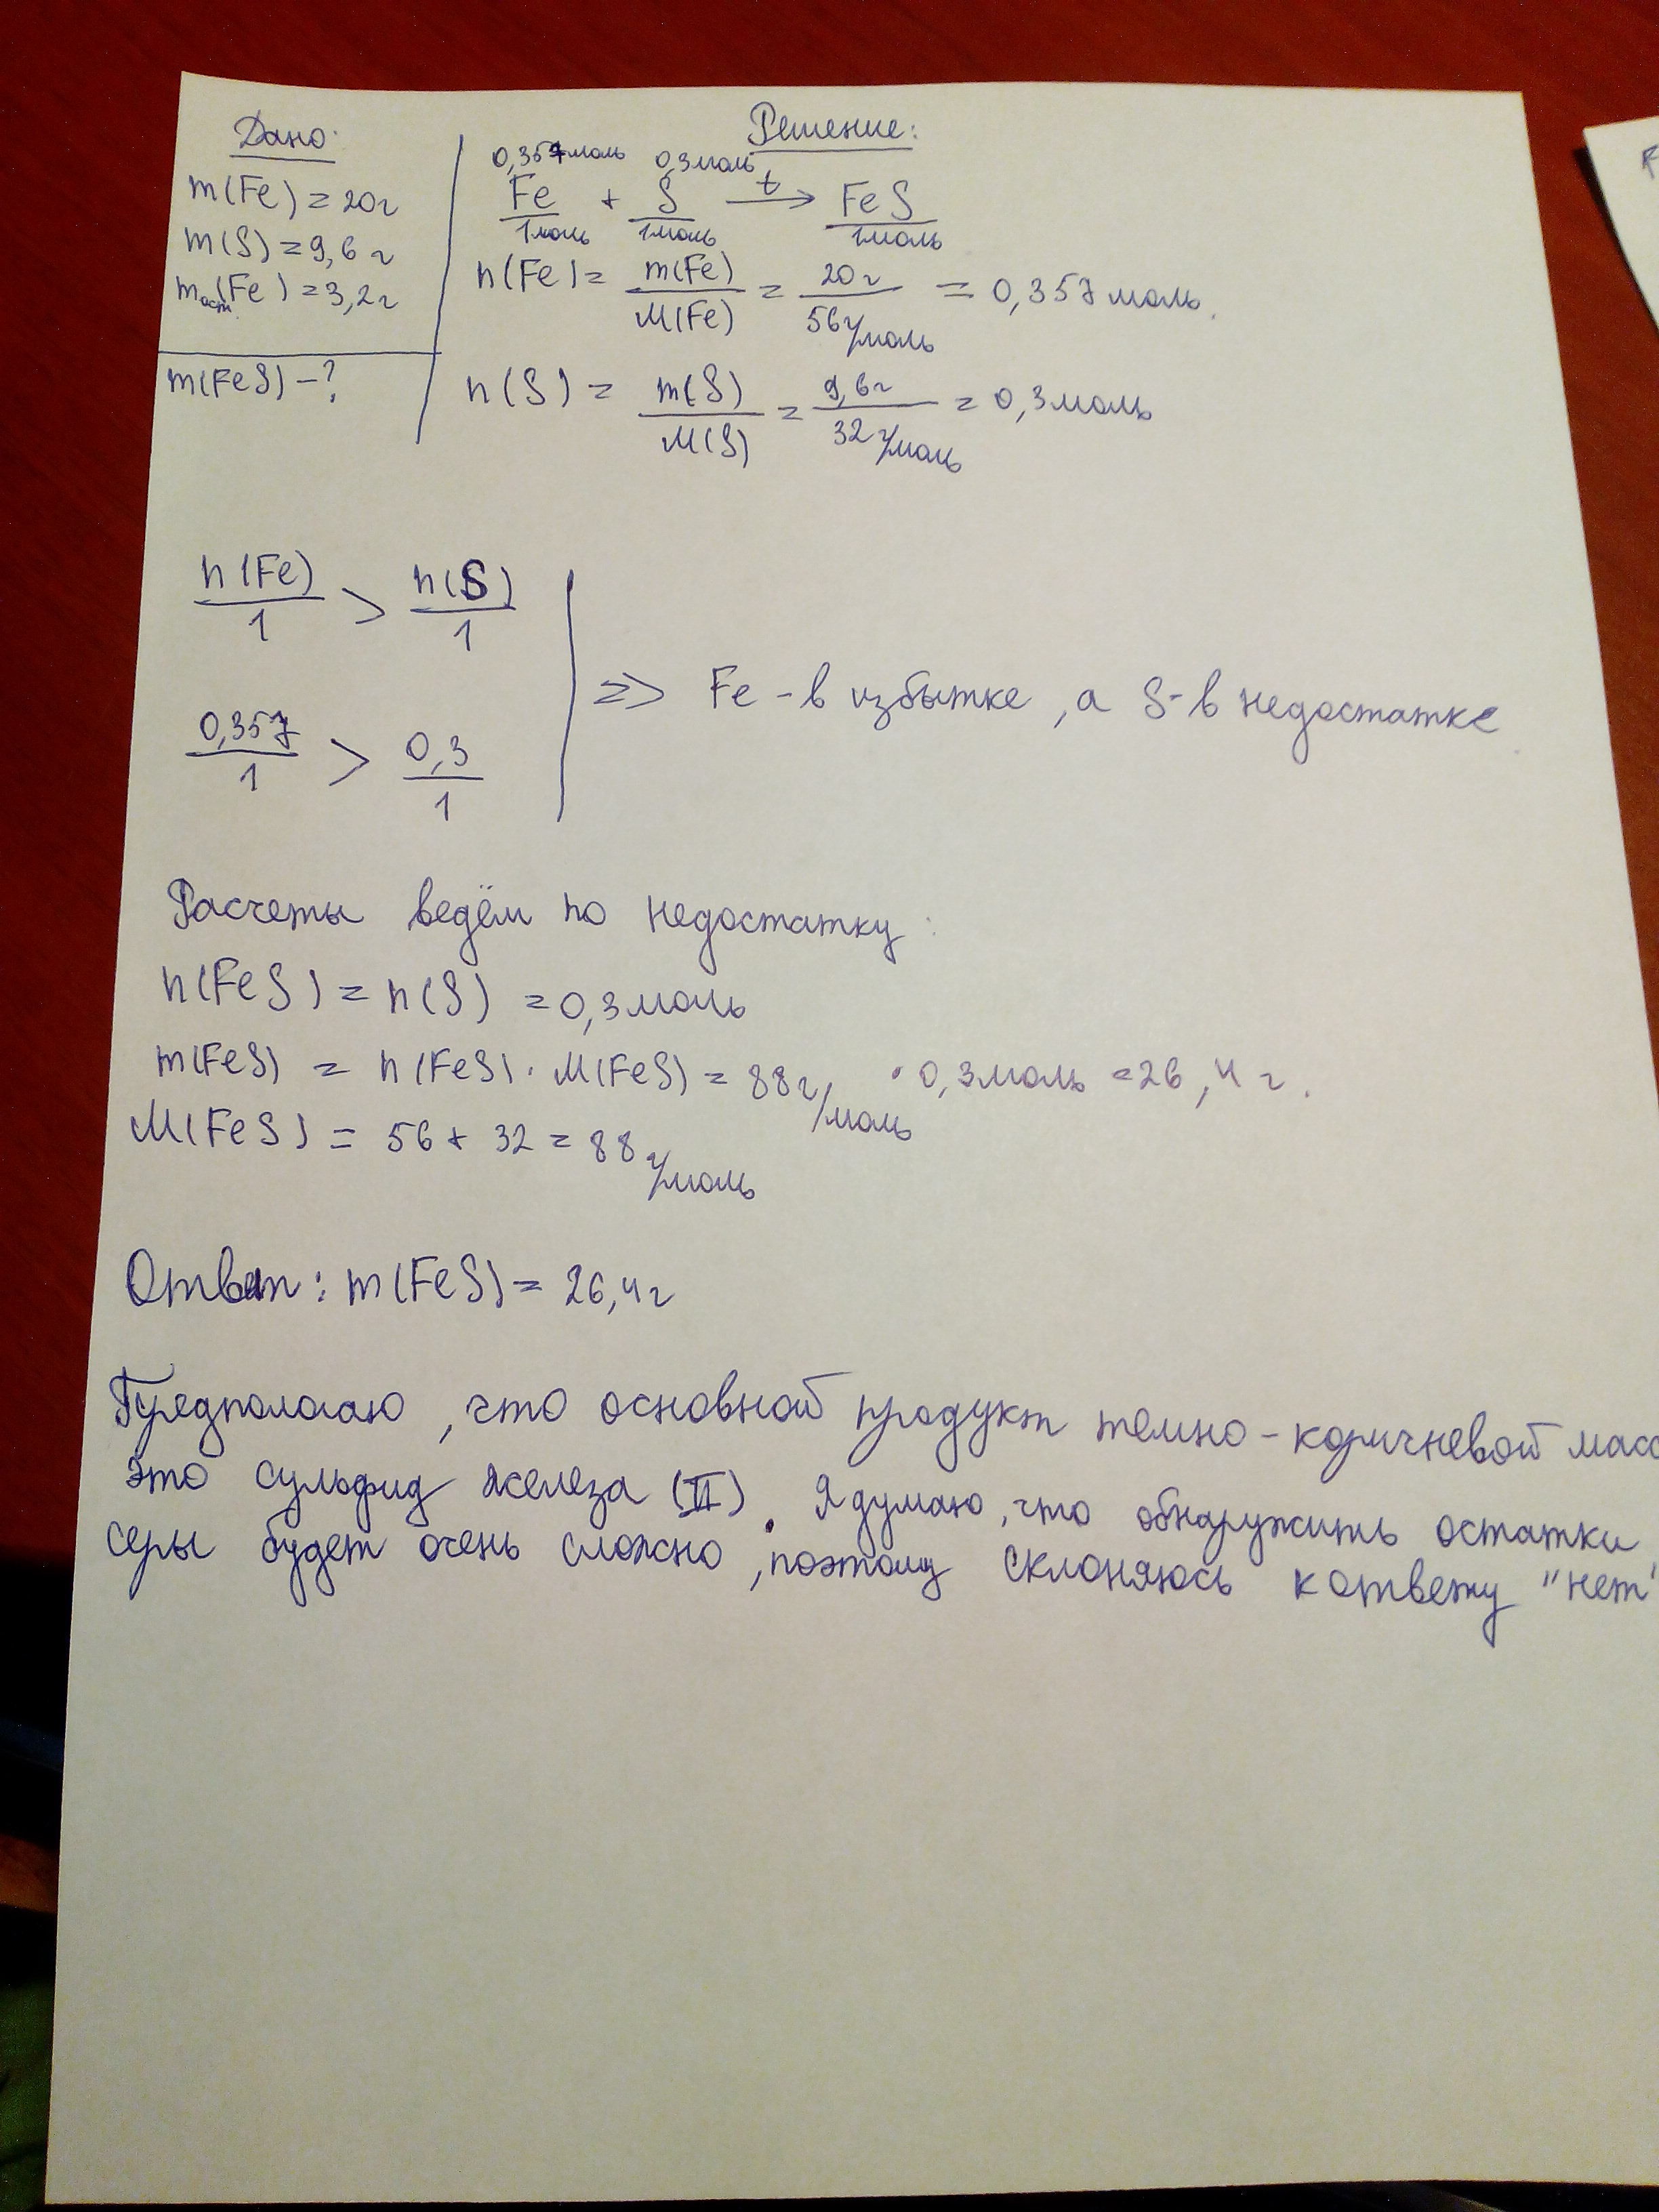 Дано: Решение:
m(Fe) = 20г
m(S) = 9,6 г
mост(Fe) = 3,2г
m(FeS) - ?
0,357моль 0,3моль
Fe + S t→ FeS
1моль 1моль 1моль
n(Fe) = m(Fe)/M(Fe) = 20г/56г/моль = 0,357моль.
n(S) = m(S)/M(S) = 9,6г/32г/моль = 0,3моль
n(Fe)/1 > n(S)/1
0,357/1 > 0,3/1
=> Fe - в избытке, а S - в недостатке
Расчеты ведём по недостатку:
n(FeS) = n(S) = 0,3моль
m(FeS) = n(FeS) · M(FeS) = 88г/моль · 0,3моль = 26,4 г.
M(FeS) = 56 + 32 = 88г/моль
Ответ: m(FeS) = 26,4г
Предполагаю, что основной продукт темно-коричневой масс
это сульфид железа (II). Я думаю, что обнаружить остатки
серы будет очень сложно, поэтому склоняюсь к ответу "нет"